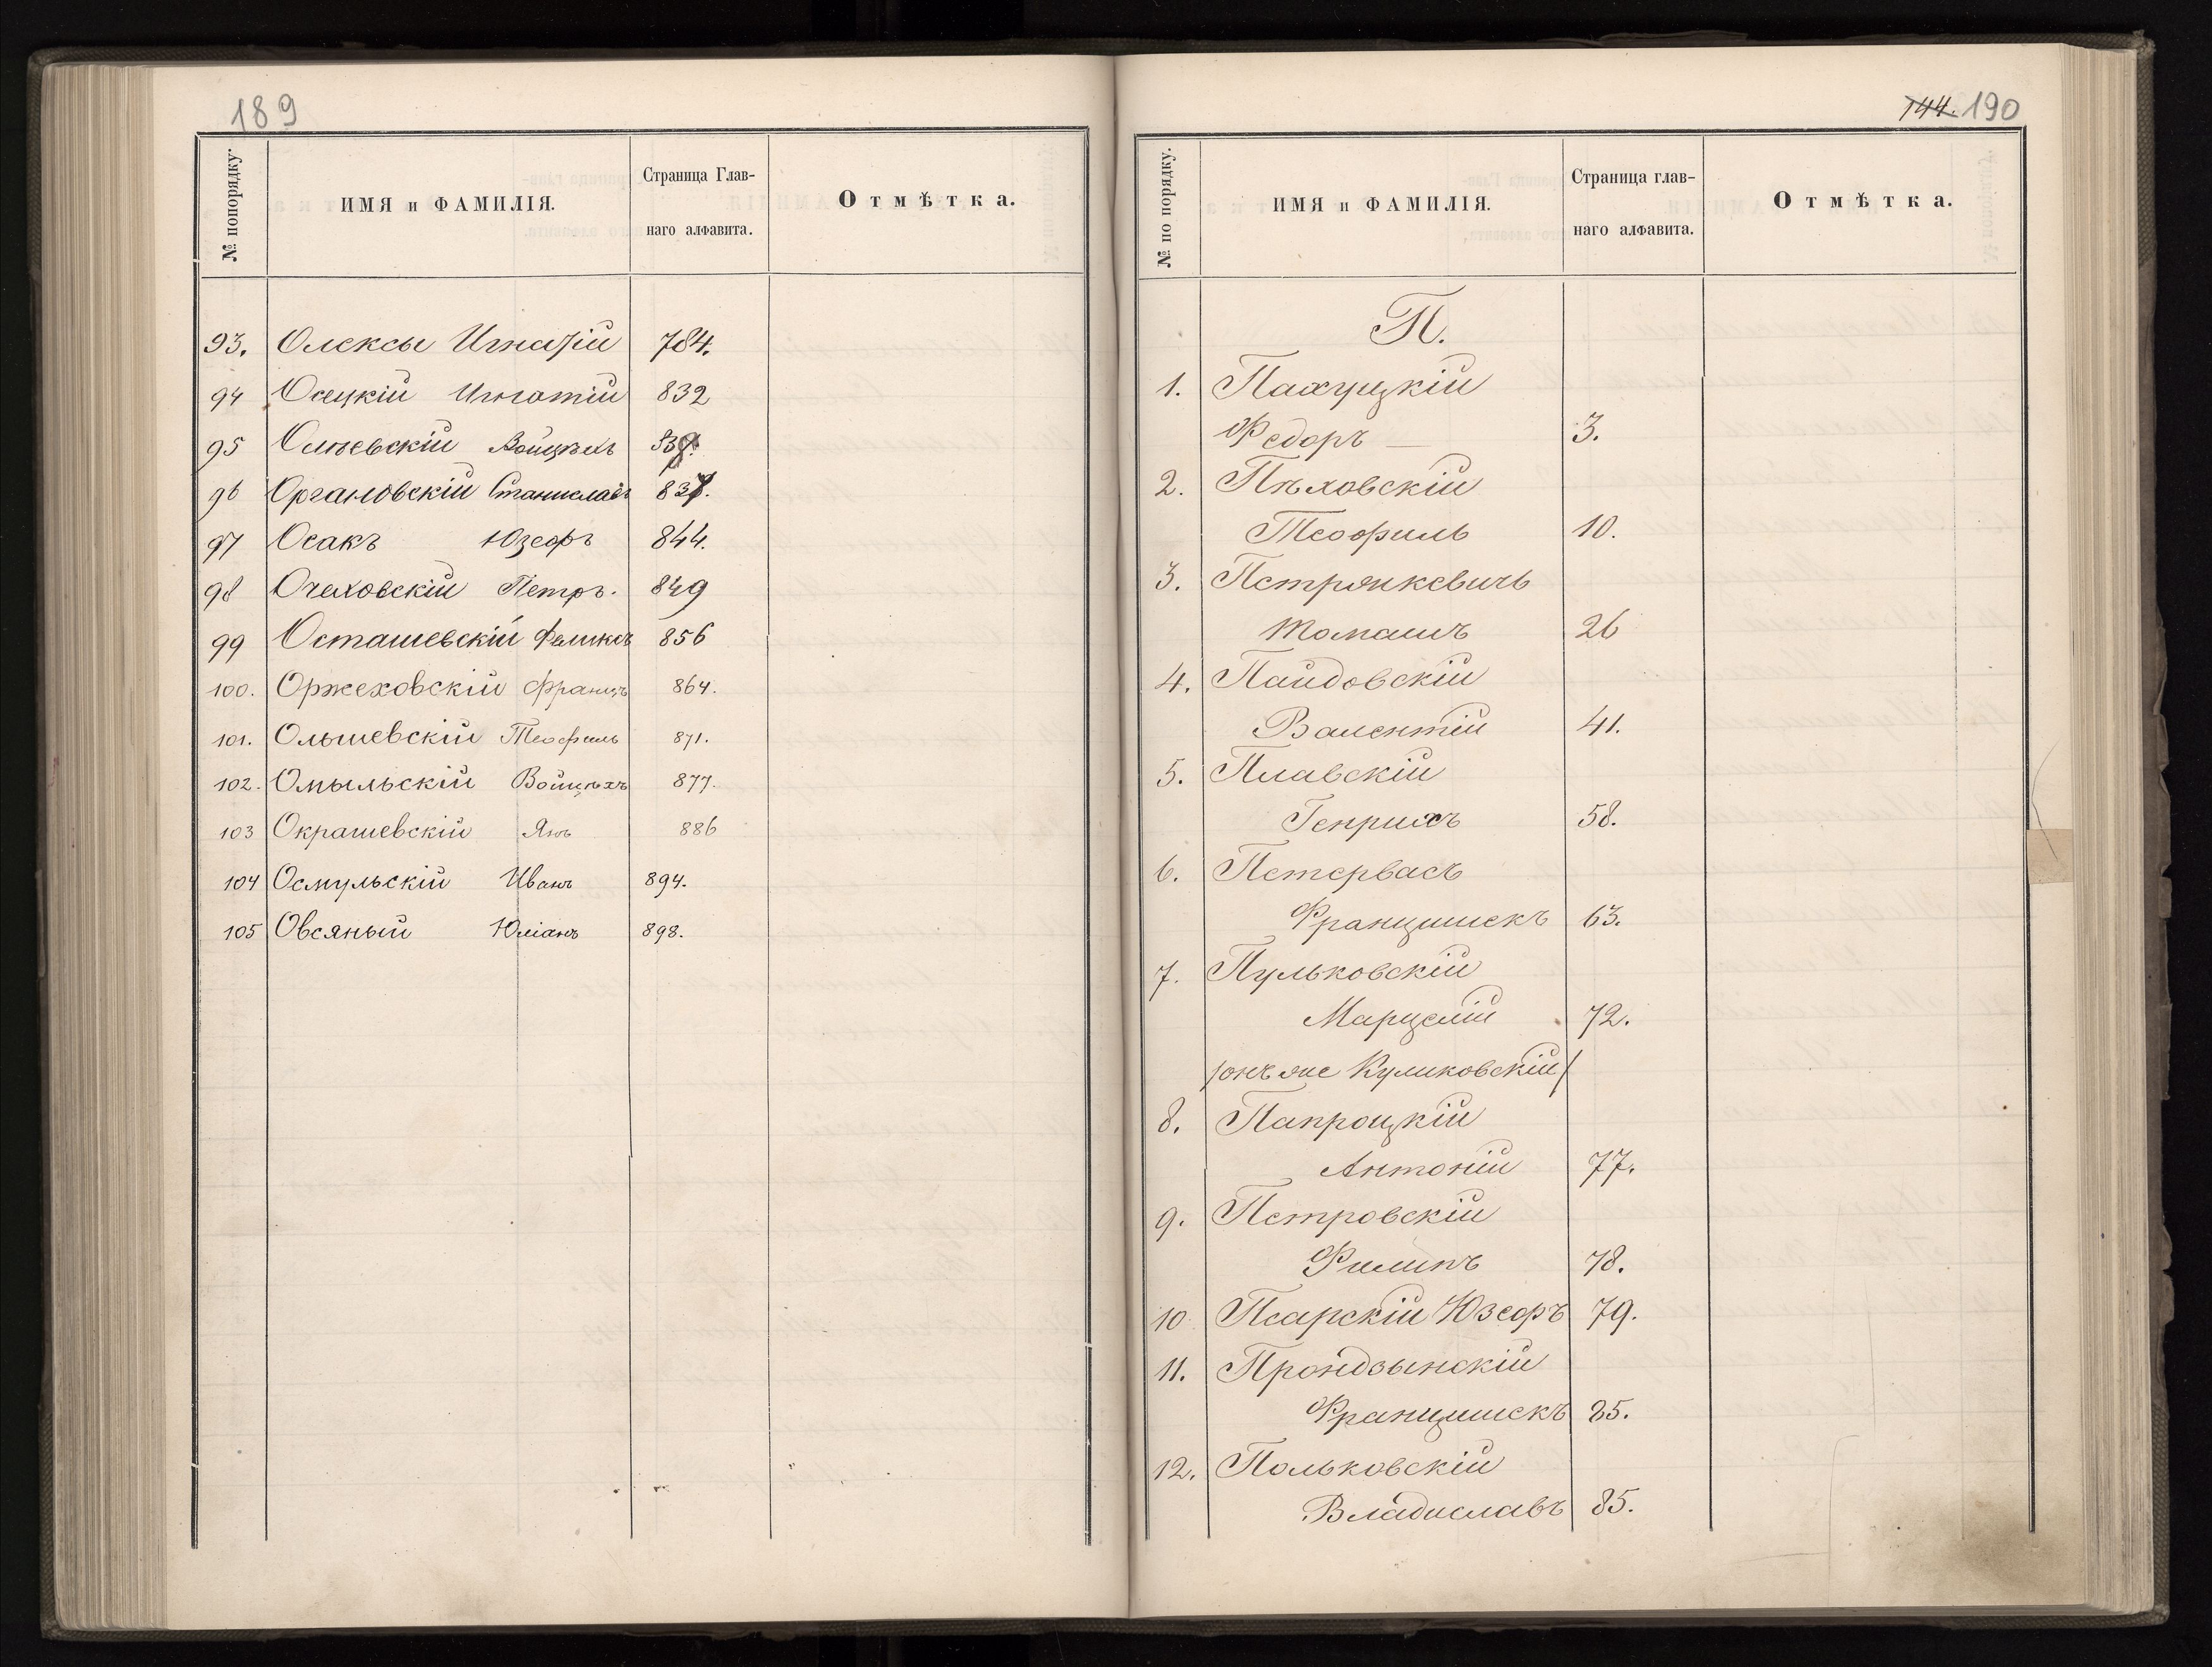 189
№ попорядку.
ИМЯ и ФАМИЛІЯ.
Страница Глав-
наго алфавита.
Отмѣтка.
93. Олексы Игнатій 784.
94 Осецкій Игнатій 832
95 Войцѣхъ
96 Органовскій Станиславъ
97 Осакъ Юзефъ 844.
98 Очеховскій Петръ. 849
99 Осташевскій Феликсъ 856
100. Оржеховскій Францъ 864.
101. Ольшевскій Теофиль 871.
102. Омыльскій Войцѣхъ 877.
103 Окрашевскій Янъ 886
104 Осмульскій Иванъ 894.
105 Овсяный Юліанъ 898.
144. 190
№ по порядку.
ИМЯ и ФАМИЛІЯ.
Страница глав-
наго алфавита.
Отмѣтка.
П.
1. Пахуцкій
Федоръ 3.
2. Пѣховскій
Теофиль 10.
3. Петрянкевичъ
Томашъ 26
4. Пайдовскій
Валентій 41.
5. Плавскій
Генрихъ 58.
6. Петервасъ
Францишекъ 63.
7. Пульковскій
Марцелій 72.
/онъ же Куликовскій/
8. Папроцкій
Антоній 77.
9. Петровскій
Филипъ 78.
10 Псарскій Юзефъ 79.
11. Прондзынскій
Францишекъ 85.
12. Польковскій
Владиславъ 85.